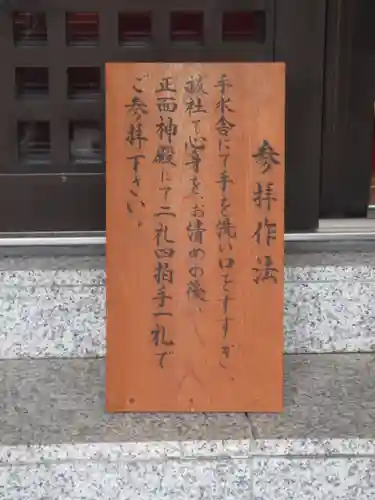 参拝作法
手水舎にて手を洗い口をすすぎ、
祓社で心身をお清めの後、
正面神殿にて二礼四拍手一礼で
ご参拝下さい。